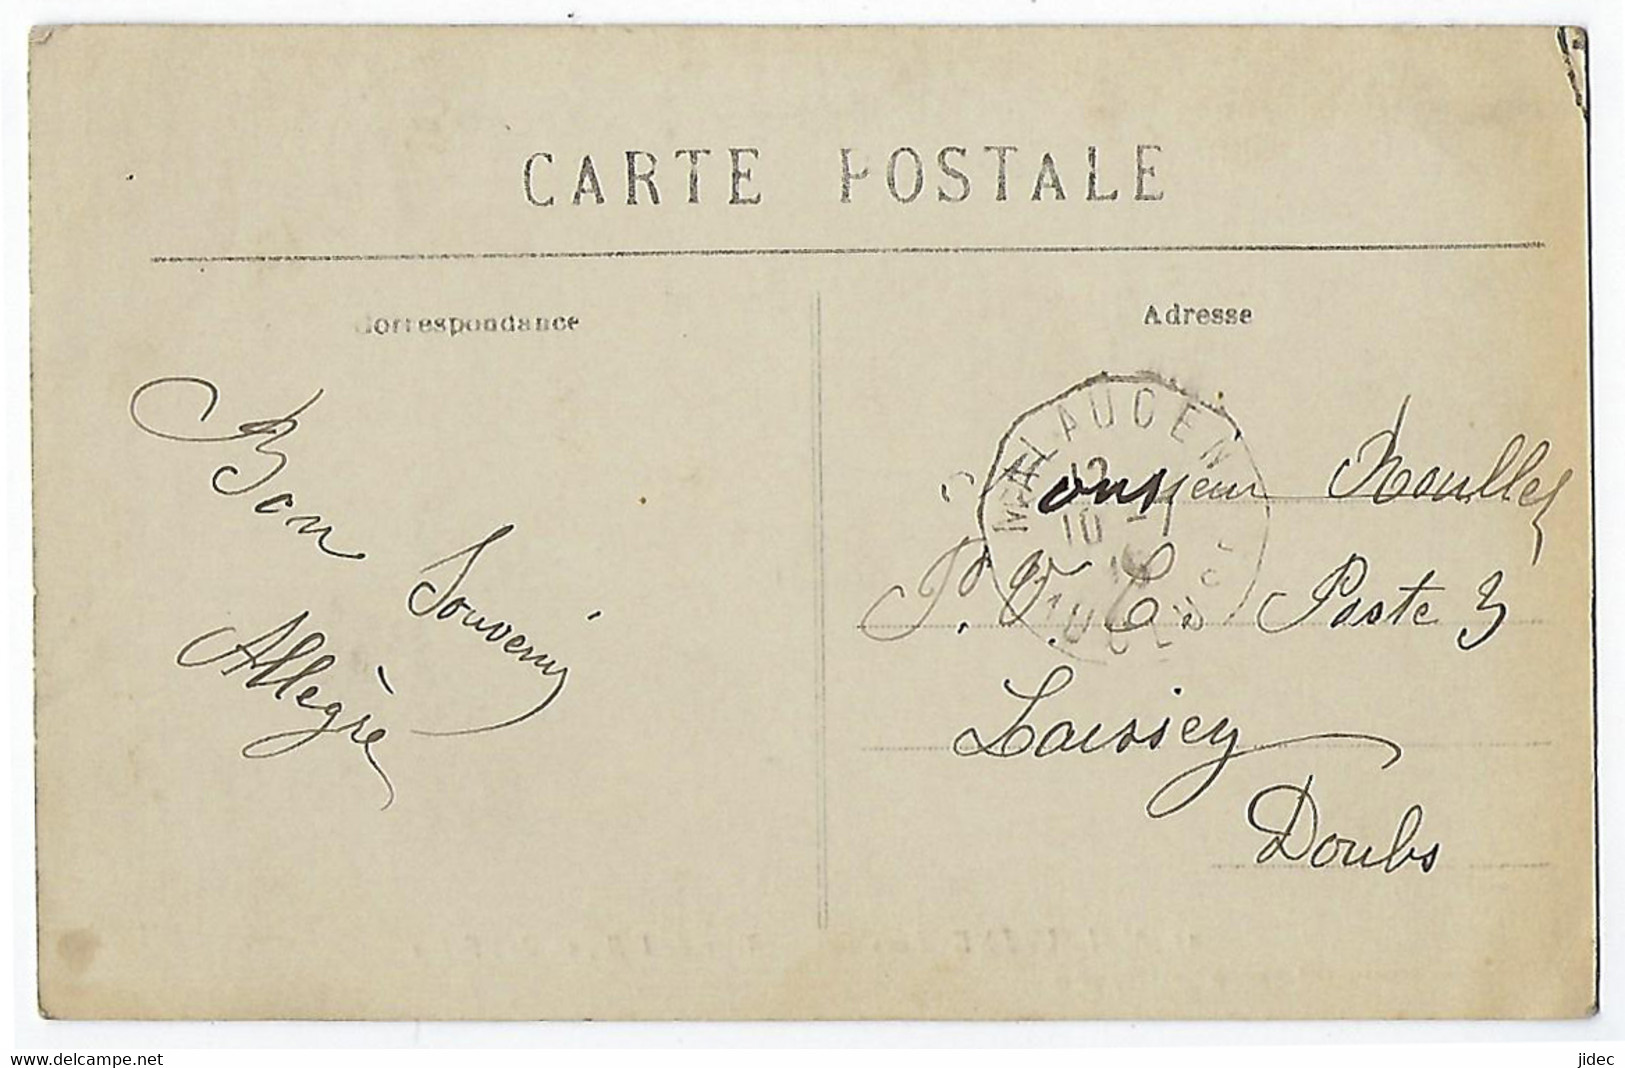 CARTE POSTALE
Correspondance
Adresse
Bon
Souvenir
Allègre
MALAUCEN
10
Monsieur Roulles
P. V. C. Poste 3
Laissey
Doubs
www.delcampe.net
jidec